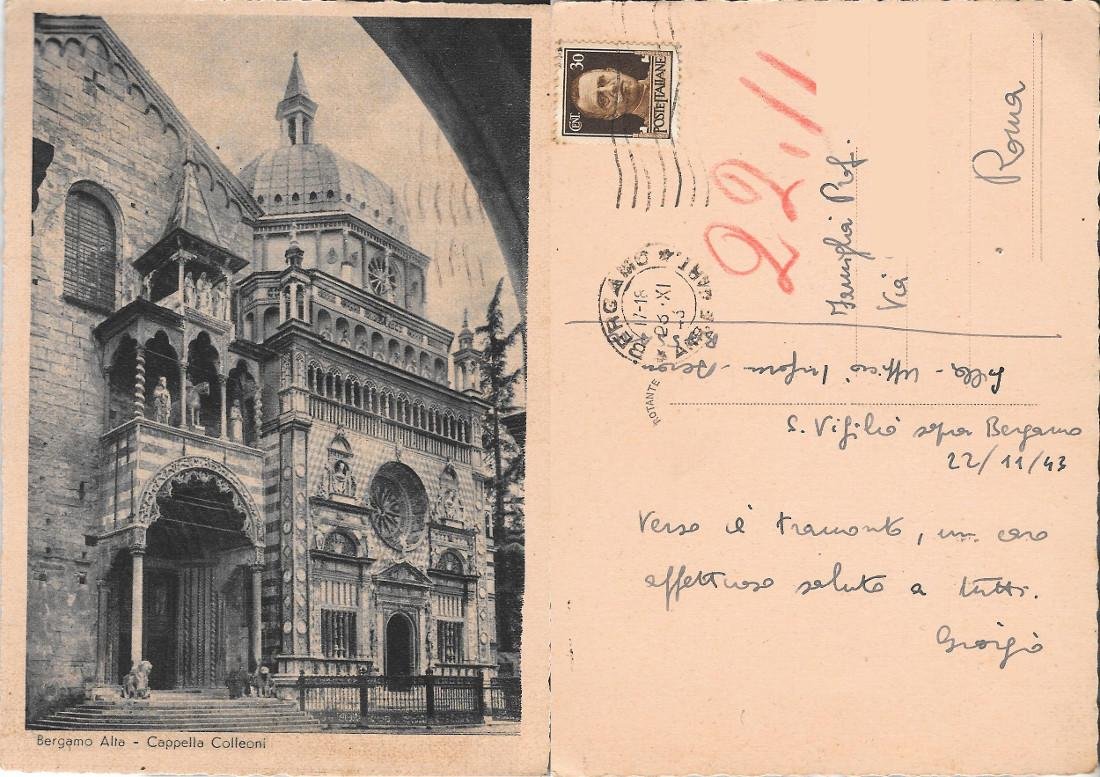 Bergamo Alta - Cappella Colleoni
CENT. 30
POSTE ITALIANE
BERGAMO
17-18
XI
ROTANTE
22.11
Famiglia Prof.
Via
Roma
Ufficio
S. Vigilio sopra Bergamo
22/11/43
Verso il tramonto, un caro
affettuoso saluto a tutti.
Giorgio